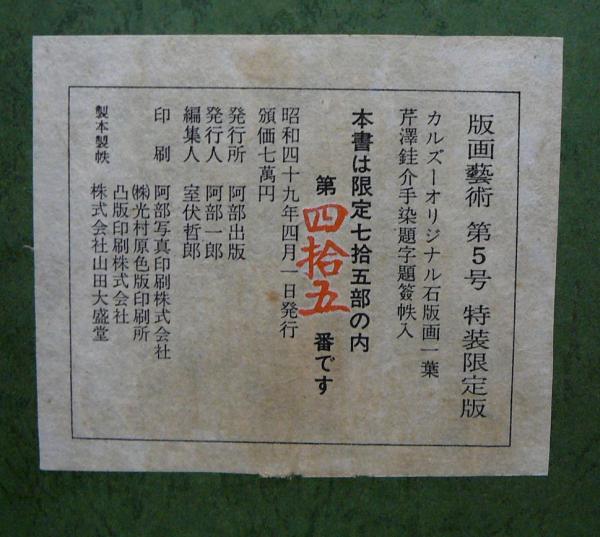 版画藝術 第5号 特装限定版
カルズーオリジナル石版画一葉
芹澤銈介手染題字題簽帙入
本書は限定七拾五部の内
第四拾五番です
昭和四十九年四月一日発行
頒価七萬円
発行所 阿部出版
発行人 阿部一郎
編集人 室伏哲郎
印刷 阿部写真印刷株式会社
㈱光村原色版印刷所
凸版印刷株式会社
製本製帙 株式会社山田大盛堂